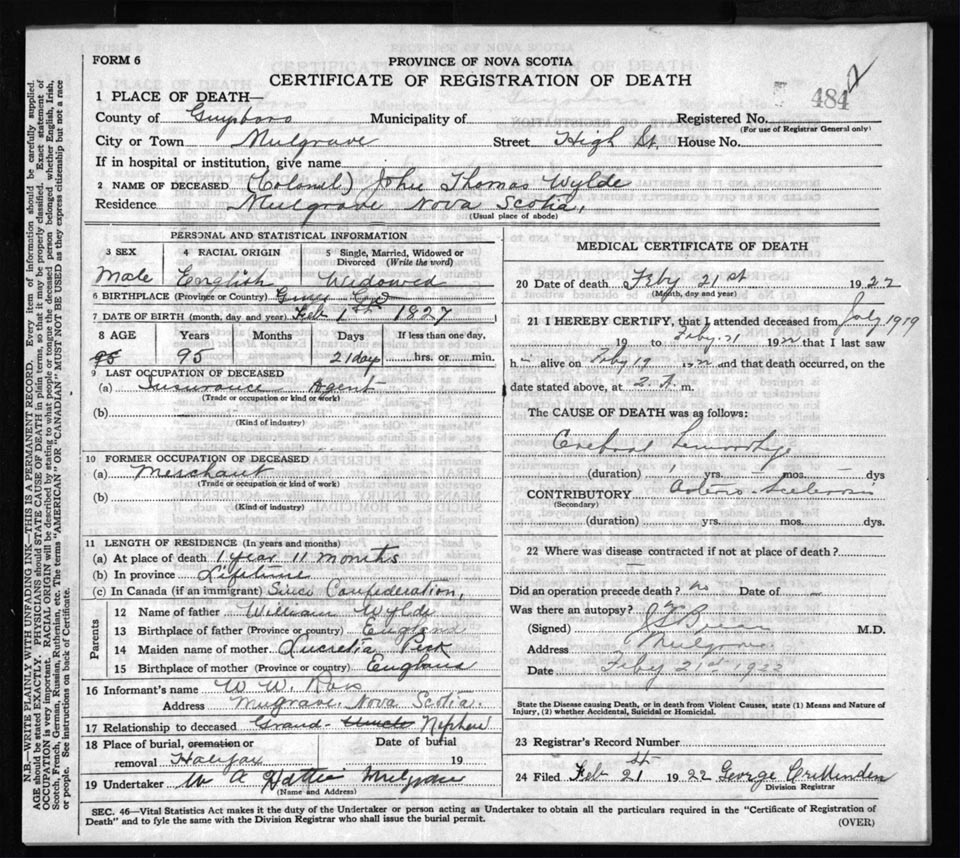 FORM 6
PROVINCE OF NOVA SCOTIA
CERTIFICATE OF REGISTRATION OF DEATH
1 PLACE OF DEATH—
County of Guysboro Municipality of Registered No. 484
(For use of Registrar General only)
City or Town Mulgrave Street High St. House No.
If in hospital or institution, give name
2 NAME OF DECEASED (Colonel) John Thomas Wylde
Residence Mulgrave Nova Scotia,
(Usual place of abode)
PERSONAL AND STATISTICAL INFORMATION
3 SEX 4 RACIAL ORIGIN 5 Single, Married, Widowed or Divorced (Write the word)
Male English Widowed
6 BIRTHPLACE (Province or Country) Guys Co
7 DATE OF BIRTH (month, day and year) Feb 1st 1827
8 AGE Years Months Days If less than one day,
95 95 21 day hrs. or min.
9 LAST OCCUPATION OF DECEASED
(a) Insurance Agent
(Trade or occupation or kind of work)
(b)
(Kind of industry)
10 FORMER OCCUPATION OF DECEASED
(a) Merchant
(Trade or occupation or kind of work)
(b)
(Kind of industry)
11 LENGTH OF RESIDENCE (In years and months)
(a) At place of death 1 year 11 months
(b) In province Lifetime
(c) In Canada (if an immigrant) Since Confederation,
Parents
12 Name of father William Wylde
13 Birthplace of father (Province or country) England
14 Maiden name of mother Lucretia
15 Birthplace of mother (Province or country) England
16 Informant's name W. W. Ross
Address Mulgrave, Nova Scotia.
17 Relationship to deceased Grand Uncle Nephew
18 Place of burial, cremation or removal Halifax Date of burial 19
19 Undertaker W A Hattie Mulgrave
(Name and Address)
MEDICAL CERTIFICATE OF DEATH
20 Date of death Feby 21st 1922
(Month, day and year)
21 I HEREBY CERTIFY, that I attended deceased from July 1919
19 to Feby 21 1922 that I last saw
h alive on Feby 19 1922 and that death occurred, on the
date stated above, at 2 A. m.
The CAUSE OF DEATH was as follows:
Cerebral hemorrhage
(duration) 1 yrs. mos. dys
CONTRIBUTORY Arterio-Sclerosis
(Secondary)
(duration) yrs. mos. dys.
22 Where was disease contracted if not at place of death?
Did an operation precede death? no Date of
Was there an autopsy?
(Signed) M.D.
Address Mulgrave
Date Feby 21st 1922
State the Disease causing Death, or in death from Violent Causes, state (1) Means and Nature of
Injury, (2) whether Accidental, Suicidal or Homicidal.
23 Registrar's Record Number
24 Filed Feb 21st 1922 George Crittenden
Division Registrar
SEC. 46—Vital Statistics Act makes it the duty of the Undertaker or person acting as Undertaker to obtain all the particulars required in the "Certificate of Registration of
Death" and to fyle the same with the Division Registrar who shall issue the burial permit.
(OVER)
N.B.—WRITE PLAINLY WITH UNFADING INK—THIS IS A PERMANENT RECORD. Every item of information should be carefully supplied.
AGE should be stated EXACTLY. PHYSICIANS should STATE CAUSE OF DEATH in plain terms, so that it may be properly classified. Exact statement of
OCCUPATION is very important. RACIAL ORIGIN will be described by stating to what people or tongue the deceased person belonged whether English, Irish,
Scotch, French, German, Russian, Ruthenian, etc. The terms "AMERICAN" or "CANADIAN" MUST NOT BE USED as they express citizenship but not a race
or people. See instructions on back of Certificate.